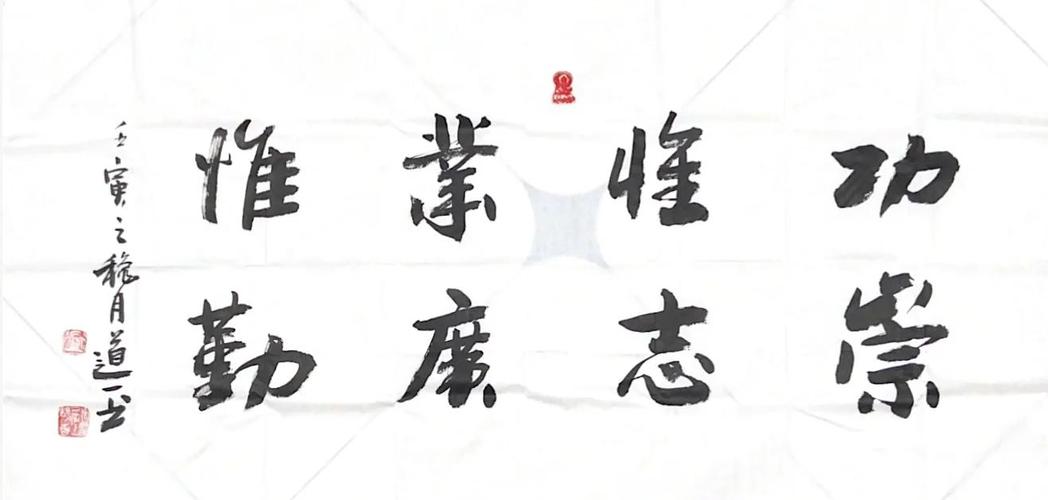 功崇
惟志
業廣
惟勤
壬寅之穐月道一书